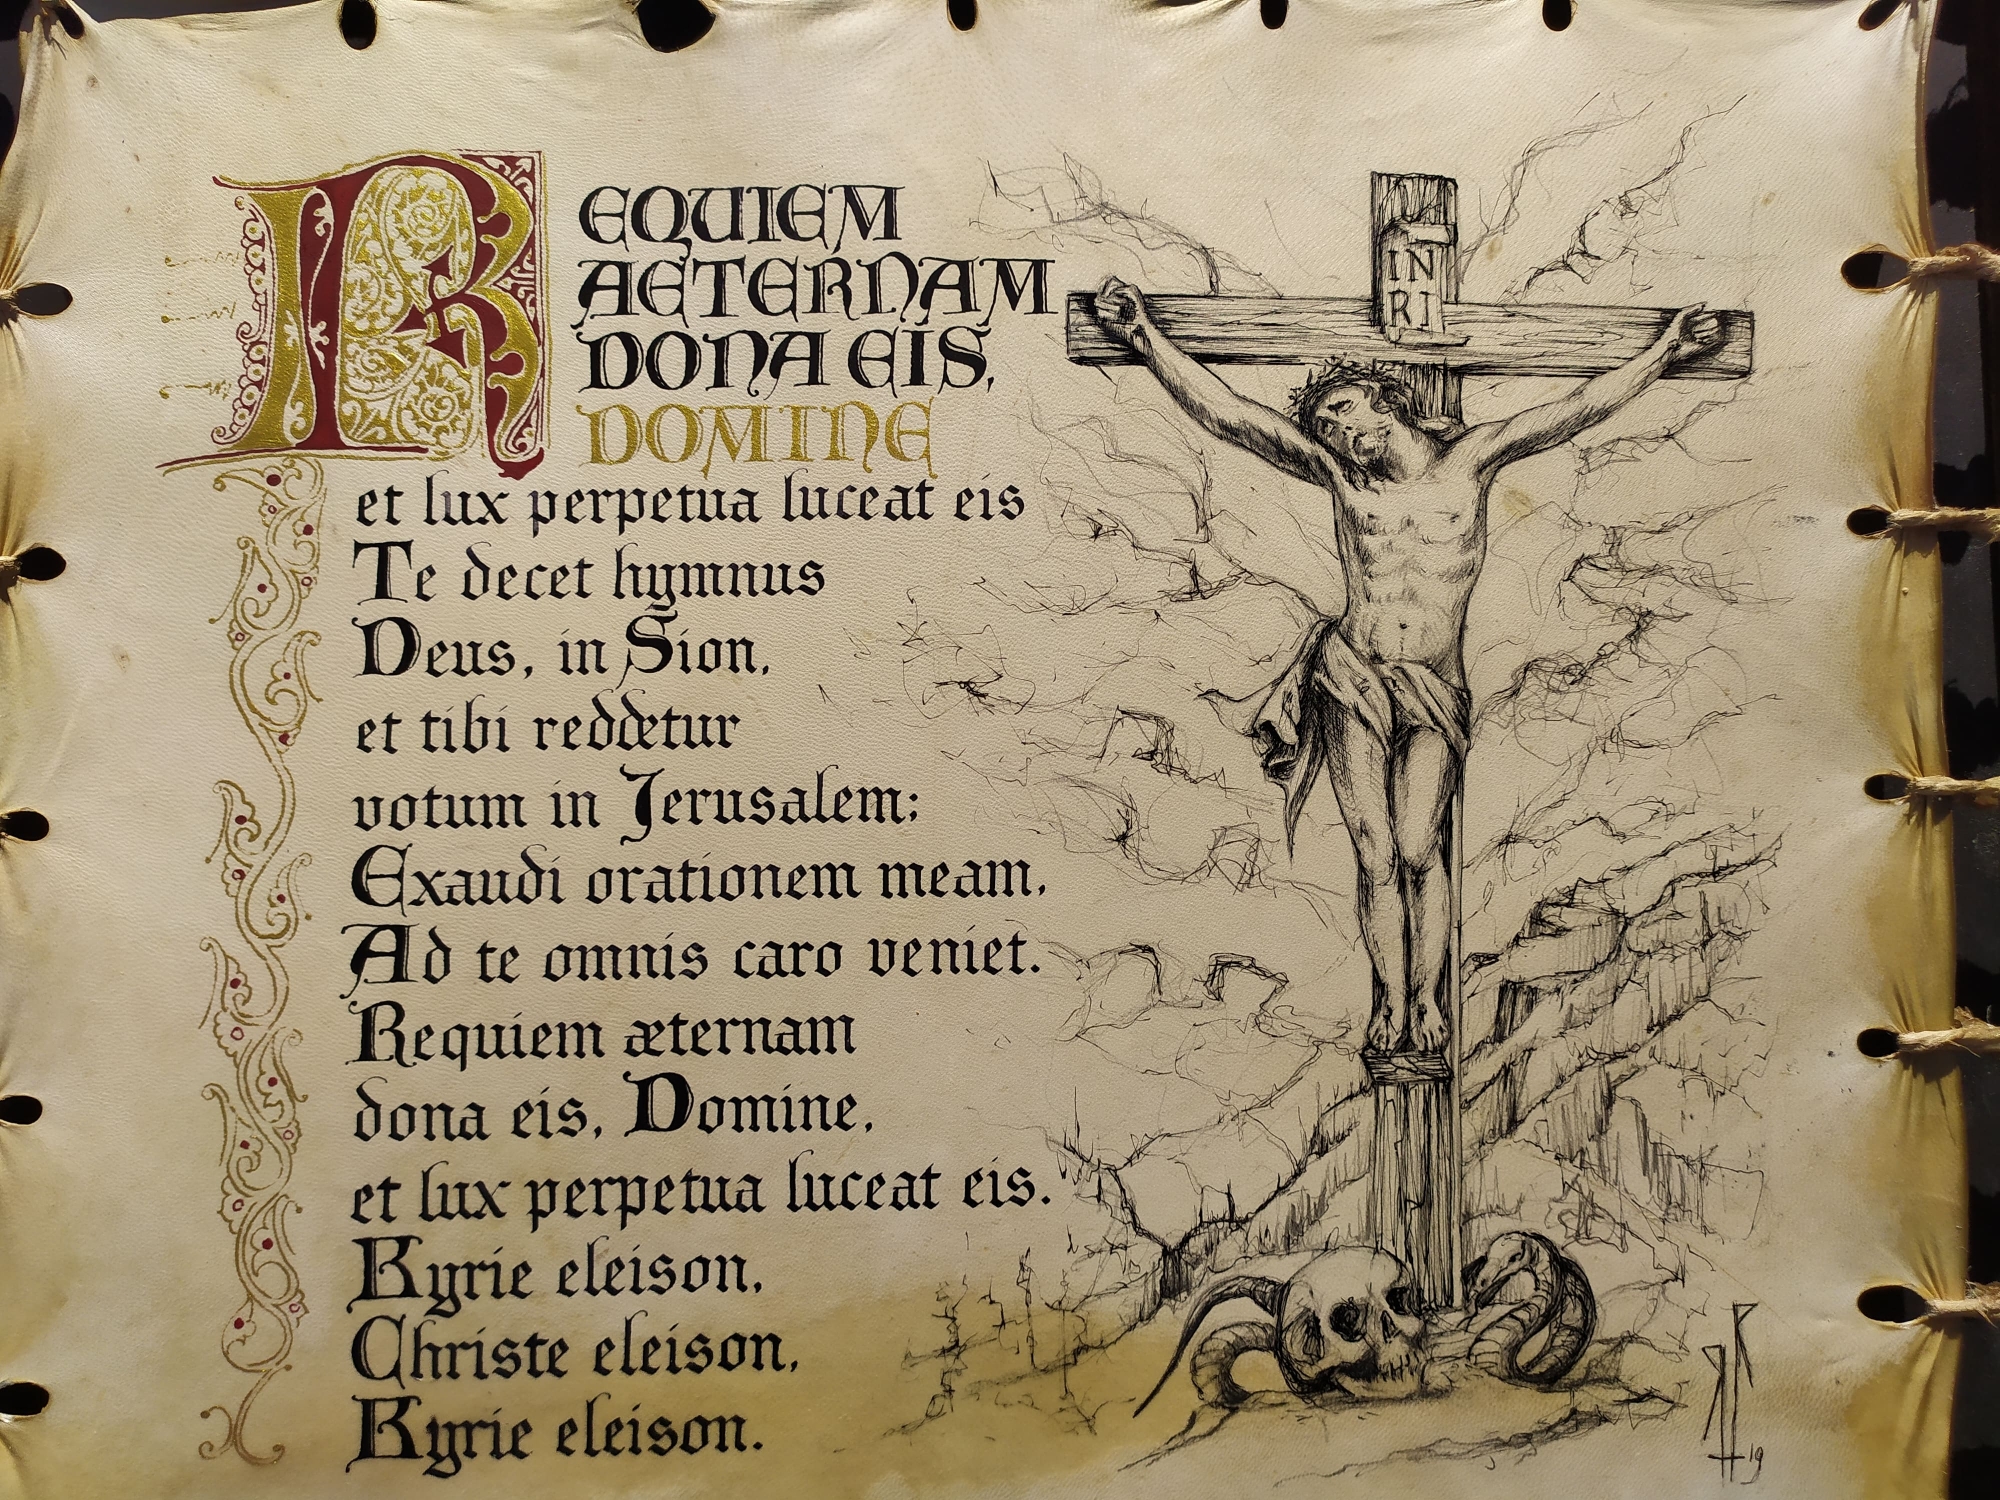 REQUIEM
AETERNAM
DONA EIS,
DOMINE
et lux perpetua luceat eis
Te decet hymnus
Deus, in Sion,
et tibi reddetur
votum in Jerusalem;
Exaudi orationem meam,
Ad te omnis caro veniet.
Requiem æternam
dona eis, Domine,
et lux perpetua luceat eis.
Kyrie eleison,
Christe eleison,
Kyrie eleison.
IN
RI
19